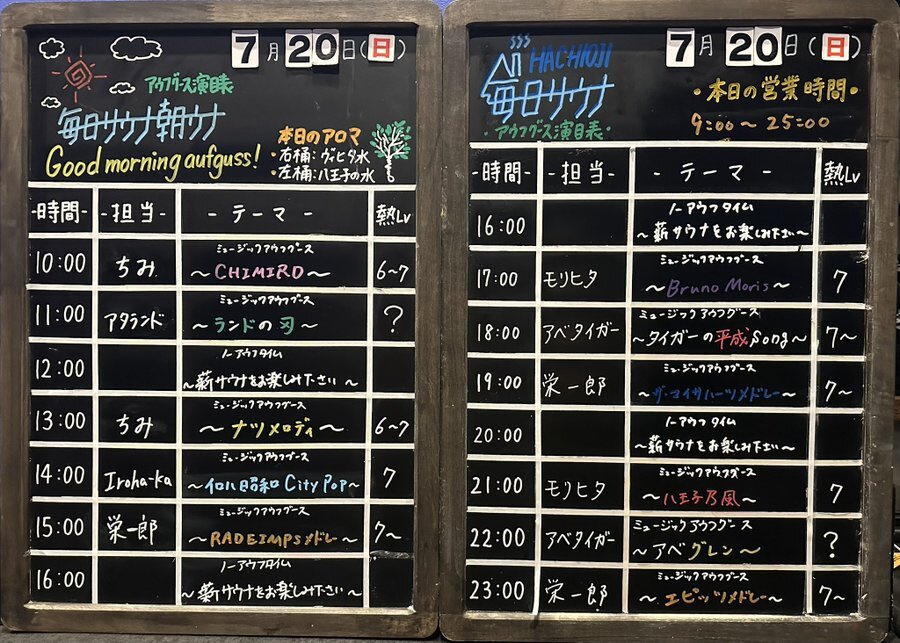 7月20日(日)
アウフグース演目表
毎日サウナ朝ウナ
Good morning aufguss!
本日のアロマ
・右桶:ヴィヒタ水
・左桶:八王子の水
-時間- -担当- -テーマ- 熱Lv
10:00 ちみ ミュージックアウフグース 6~7
～CHIMIRO～
11:00 アタランド ミュージックアウフグース ?
～ランドの刃～
12:00 ノーアウフタイム
～薪サウナをお楽しみ下さい～
13:00 ちみ ミュージックアウフグース 6~7
～ナツメロディ～
14:00 Iroha-ka ミュージックアウフグース 7
～イロハ昭和City Pop～
15:00 栄一郎 ミュージックアウフグース 7~
～RADEIMPSメドレー～
16:00 ノーアウフタイム
～薪サウナをお楽しみ下さい～
7月20日(日)
HACHIOJI
毎日サウナ
・アウフグース演目表・
・本日の営業時間・
9:00～25:00
-時間- -担当- -テーマ- 熱Lv
16:00 ノーアウフタイム
～薪サウナをお楽しみ下さい～
17:00 モリヒタ ミュージックアウフグース 7
～Bruno Moris～
18:00 アベタイガー ミュージックアウフグース 7~
～タイガーの平成Song～
19:00 栄一郎 ミュージックアウフグース 7~
～ザ・マイサハーツメドレー～
20:00 ノーアウフタイム
～薪サウナをお楽しみ下さい～
21:00 モリヒタ ミュージックアウフグース 7
～八王子乃風～
22:00 アベタイガー ミュージックアウフグース ?
～アベグレン～
23:00 栄一郎 ミュージックアウフグース 7~
～エピッツメドレー～